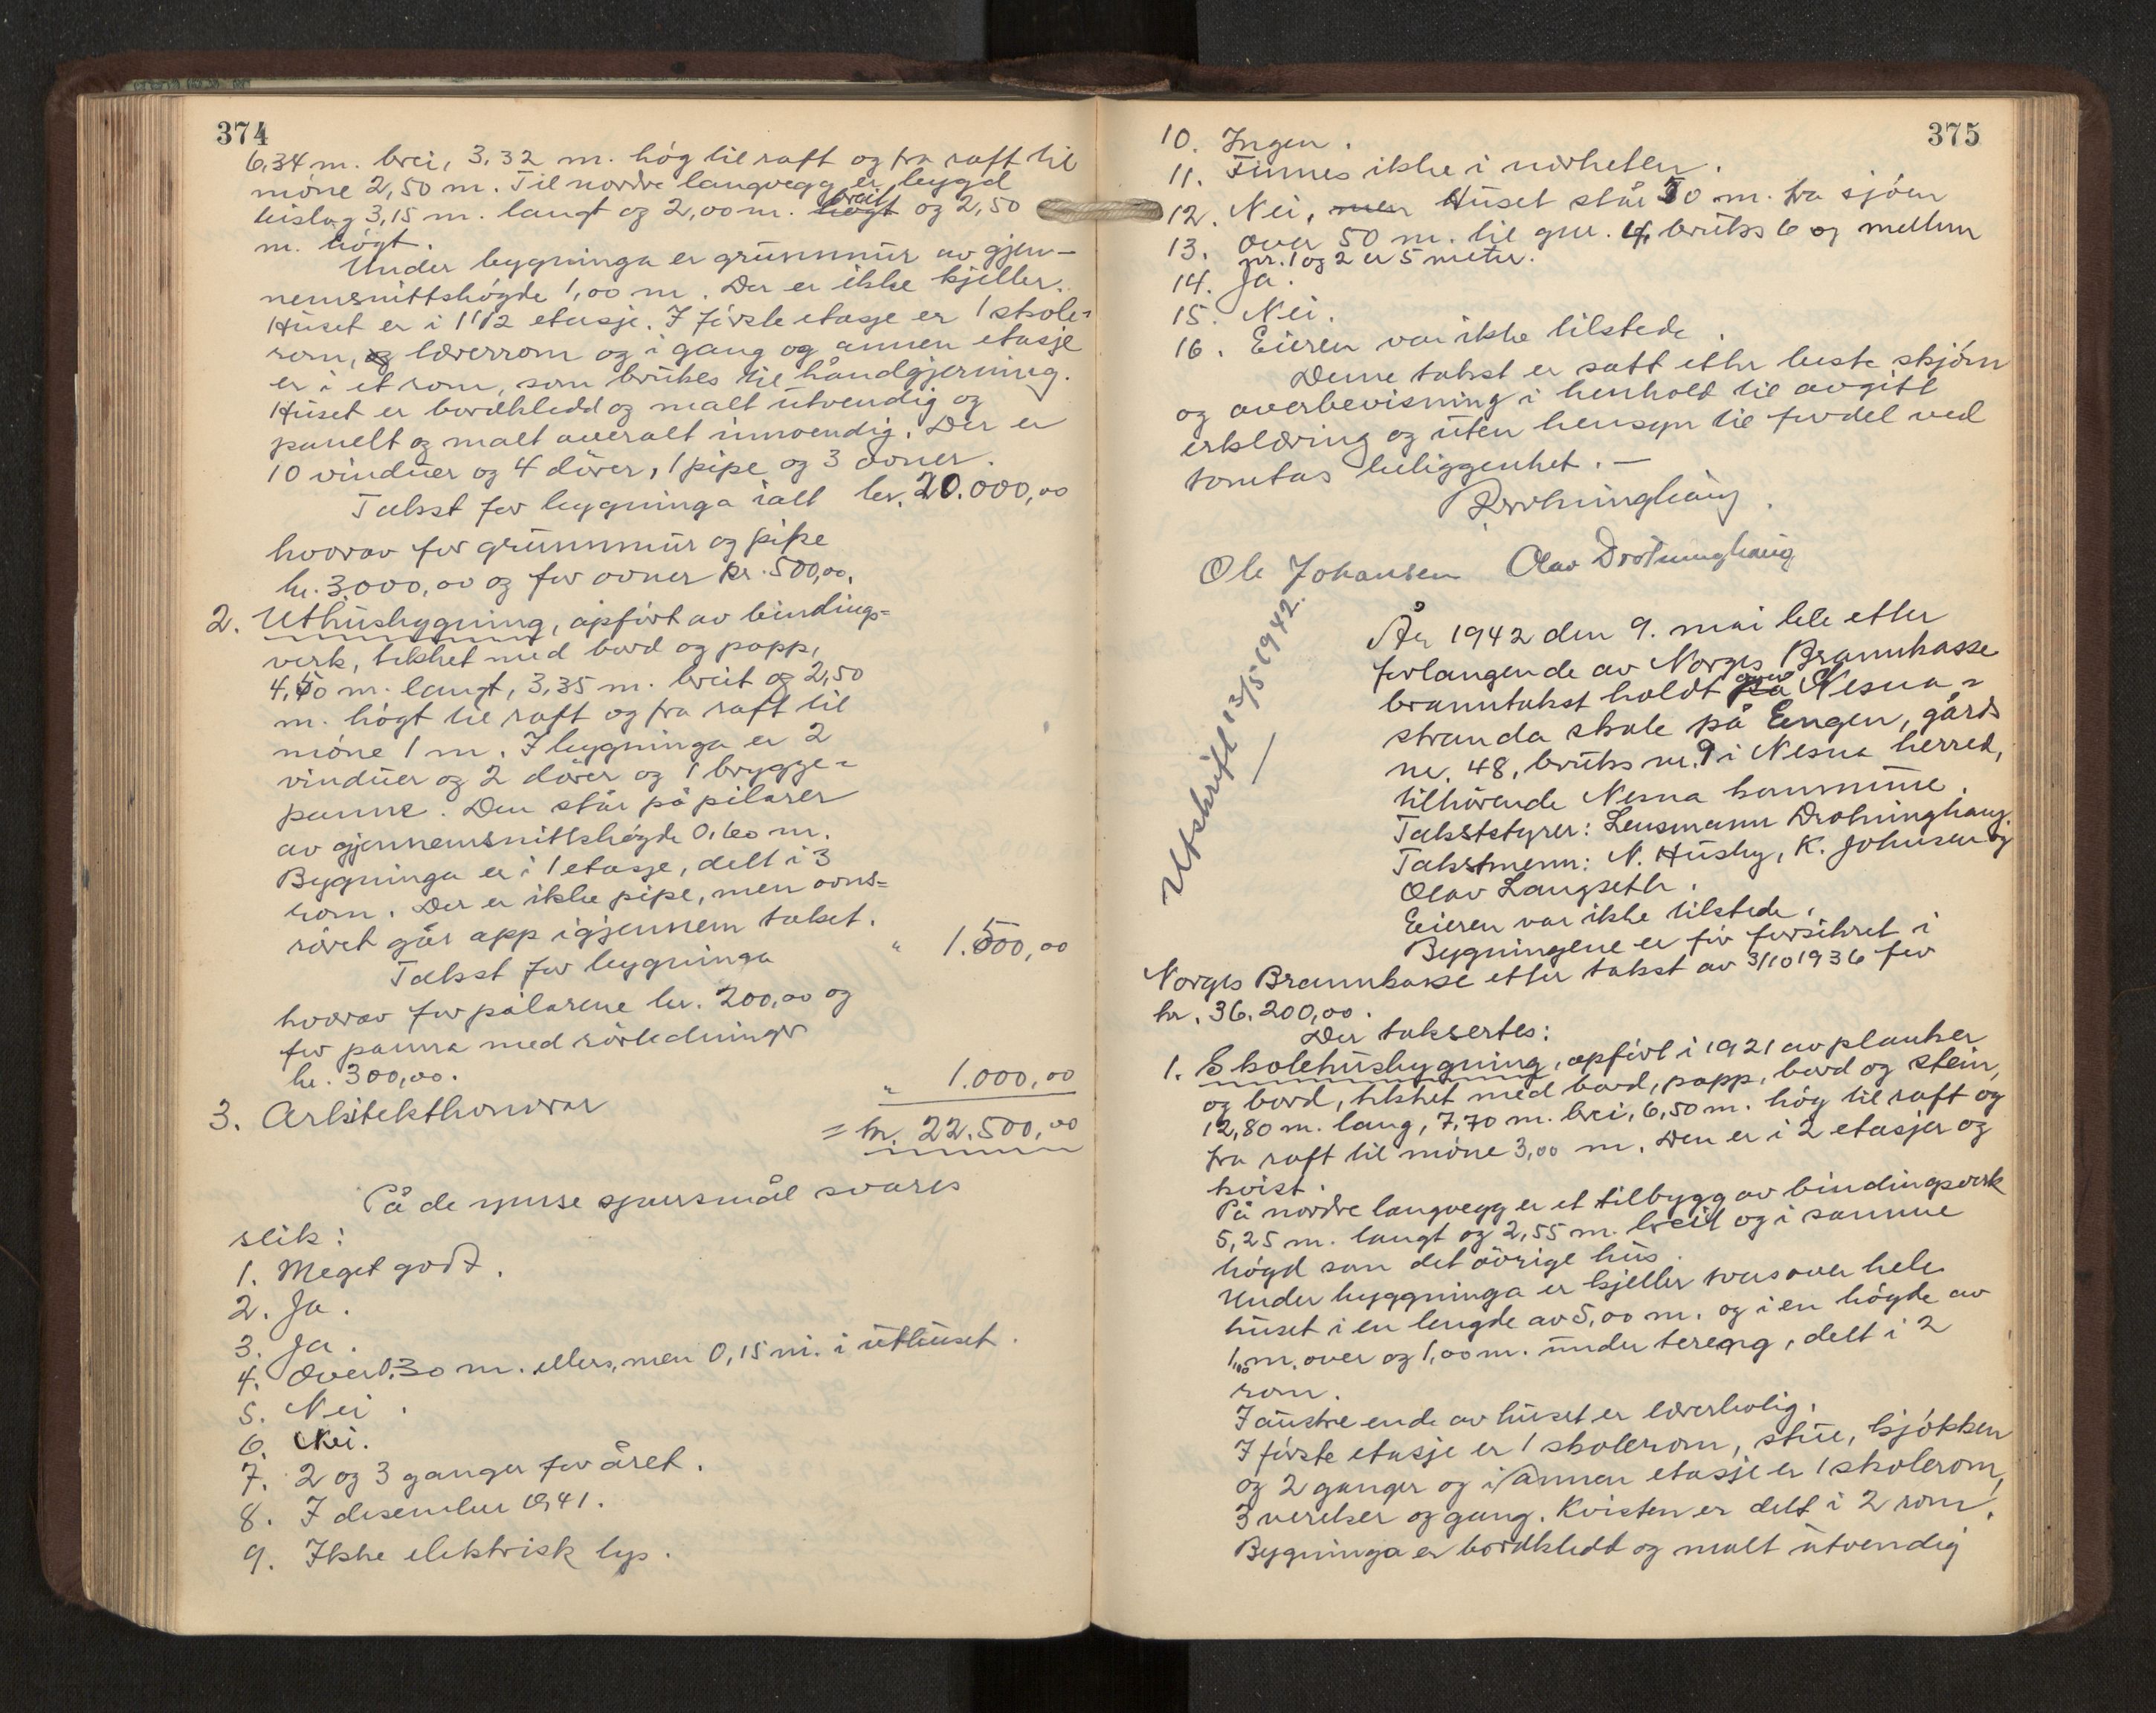 374
6,34 m. brei, 3,32 m. høg til raft og fra raft til
møne 2,50 m. Til nordre langvegg er bygd
bislag 3,15 m. langt og 2,00 m. høgt breit og 2,50
m. høgt.
Under bygninga er grunnmur av gjen-
nemsnittshøgde 1,00 m. Der er ikke kjeller.
Huset er i 1 1/2 etasje. I første etasje er 1 skole-
rom, og lærerrom og i gang og annen etasje
er i et rom, som brukes til håndgjerning.
Huset er bordkledd og malt utvendig og
panelt og malt overalt innvendig. Der er
10 vinduer og 4 dører, 1 pipe og 3 ovner.
Takst for bygninga ialt kr. 20.000,00
hvorav for grunnmur og pipe
kr. 3000,00 og for ovner kr. 500,00.
2. Uthusbygning, opført av bindings-
verk, tekket med bord og papp,
4,50 m. langt, 3,35 m. breit og 2,50
m. høgt til raft og fra raft til
møne 1 m. I bygninga er 2
vinduer og 2 dører og 1 brygge-
panne. Den står på pilarer
av gjennemsnittshøgde 0,60 m.
Bygninga er i 1 etasje, delt i 3
rom. Der er ikke pipe, men ovns-
røret går opp igjennem taket.
Takst for bygninga " 1.500,00
hvorav for pilarene kr. 200,00 og
for panna med rørledninger
kr. 300,00.
3. Arkitekthonorar " 1.000,00
= kr. 22.500,00
På de ymse spørsmål svares
slik:
1. Meget godt.
2. Ja.
3. Ja.
4. Over 0.30 m. ellers, men 0,15 m. i uthuset.
5. Nei.
6. Nei.
7. 2 og 3 ganger for året.
8. I desember 1941.
9. Ikke elektrisk lys.
375
10. Ingen.
11. Finnes ikke i nærheten.
12. Nei, men Huset står 50 m. fra sjøen
13. Over 50 m. til gnr. 4, bruks 6 og mellem
nr. 1 og 2 er 5 meter.
14. Ja.
15. Nei.
16. Eieren var ikke tilstede.
Denne takst er satt etter beste skjønn
og overbevisning i henhold til avgitt
erklæring og uten hensyn til fordel ved
tomtas beliggenhet. —
Drotninghaug.
Ole Johansen Olav Drotninghaug
Utskrift 13/5 1942.
År 1942 den 9. mai ble etter
forlangende av Norges Brannkasse
branntakst holdt på over Nesna-
stranda skole på Engen, gårds
nr. 48, bruks nr. 9 i Nesna herred,
tilhørende Nesna kommune.
Takststyrer: Lensmann Drotninghaug.
Takstmenn: N. Husby, K. Johnsen og
Olav Langseth.
Eieren var ikke tilstede.
Bygningene er før forsikret i
Norges Brannkasse etter takst av 3/10 1936 for
kr. 36.200,00.
Der taksertes:
1. Skolehusbygning, opført i 1921 av planker
og bord, tekket med bord, papp, bord og stein,
12,80 m. lang, 7,70 m. brei, 6,50 m. høg til raft og
fra raft til møne 3,00 m. Den er i 2 etasjer og
kvist.
På nordre langvegg er et tilbygg av bindingsverk
5,25 m. langt og 2,55 m. breit og i samme
høgd som det øvrige hus.
Under byggninga er kjeller tvers over hele
huset i en lengde av 5,00 m. og i en høgde av
1,00 m. over og 1,00 m. under tereng, delt i 2
rom.
I austre ende av huset er lærerbolig.
I første etasje er 1 skolerom, stue, kjøkken
og 2 ganger og i annen etasje er 1 skolerom,
3 verelser og gang. Kvisten er delt i 2 rom.
Bygninga er bordkledd og malt utvendig